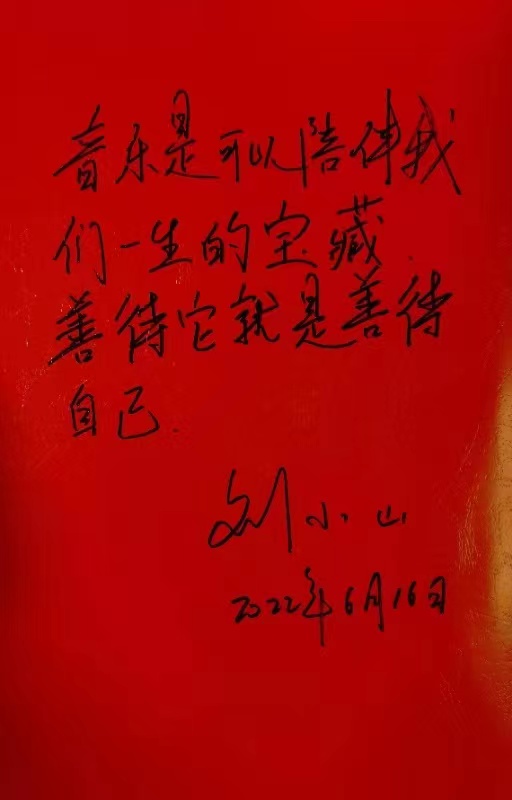 音乐是可以陪伴我
们一生的宝藏.
善待它就是善待
自己.
刘小山
2022年6月16日